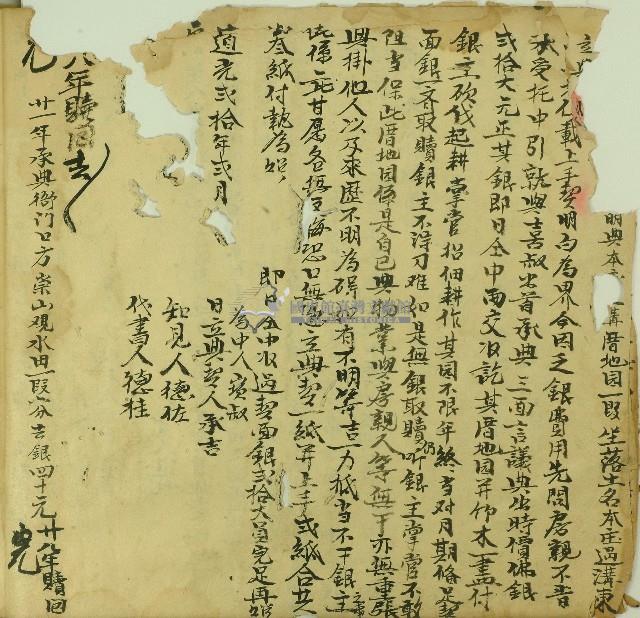 明典本 溝厝地园一段坐落土名本庄過溝東
不載上手契明白為界今因乏銀費用先問房親不肯
承受托中引就與喜叔出首承典三面言議典出時價佛銀
弍拾大元正其銀即日仝中両交收訖其厝地园并竹木一盡付
銀主砍伐起耕掌管招佃耕作其园不限年終当对月期俻足契
面銀一齊取贖銀主不得刁难如是無銀取贖仍听銀主掌管不敢
阻当保此厝地园係是自己典 業與房親人等無干亦無重張
典掛他人以及來歷不明為碍 有不明等吉一力抵当不干銀主之事
此係二比甘愿各無反悔恐口無憑立典契一紙并上手弍紙合共
叁紙付執為炤
即日仝中收過契面銀弍拾大員完足再炤
為中人 叔
道光弍拾年弍月 日立典契人承吉
知見人德佐
代書人德桂
八年贖回去
廿一年承典衙门口方崇山观水田一段 去銀四十元廿八年贖回